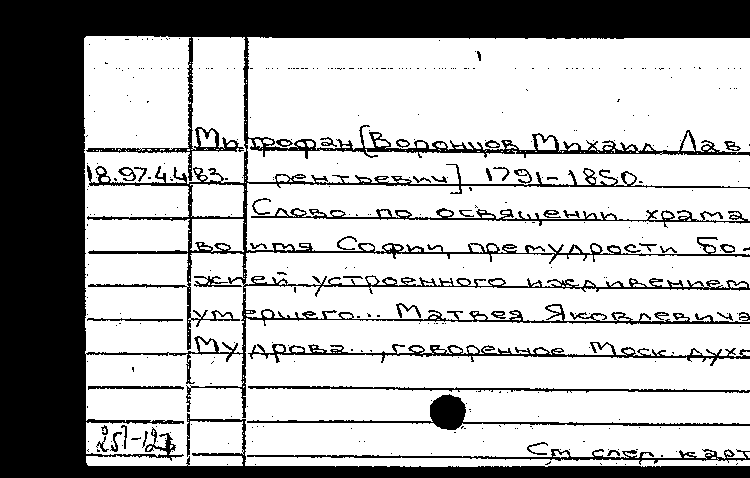 Митрофан [Воронцов, Михаил Лав-
18.97.4.483. рентьевич], 1791-1850.
Слово по освящении храма
во имя Софии, премудрости Бо-
жией, устроенного иждивением
умершего... Матвея Яковлевича
Мудрова..., говоренное Моск. духо
251-12
См. след. карт